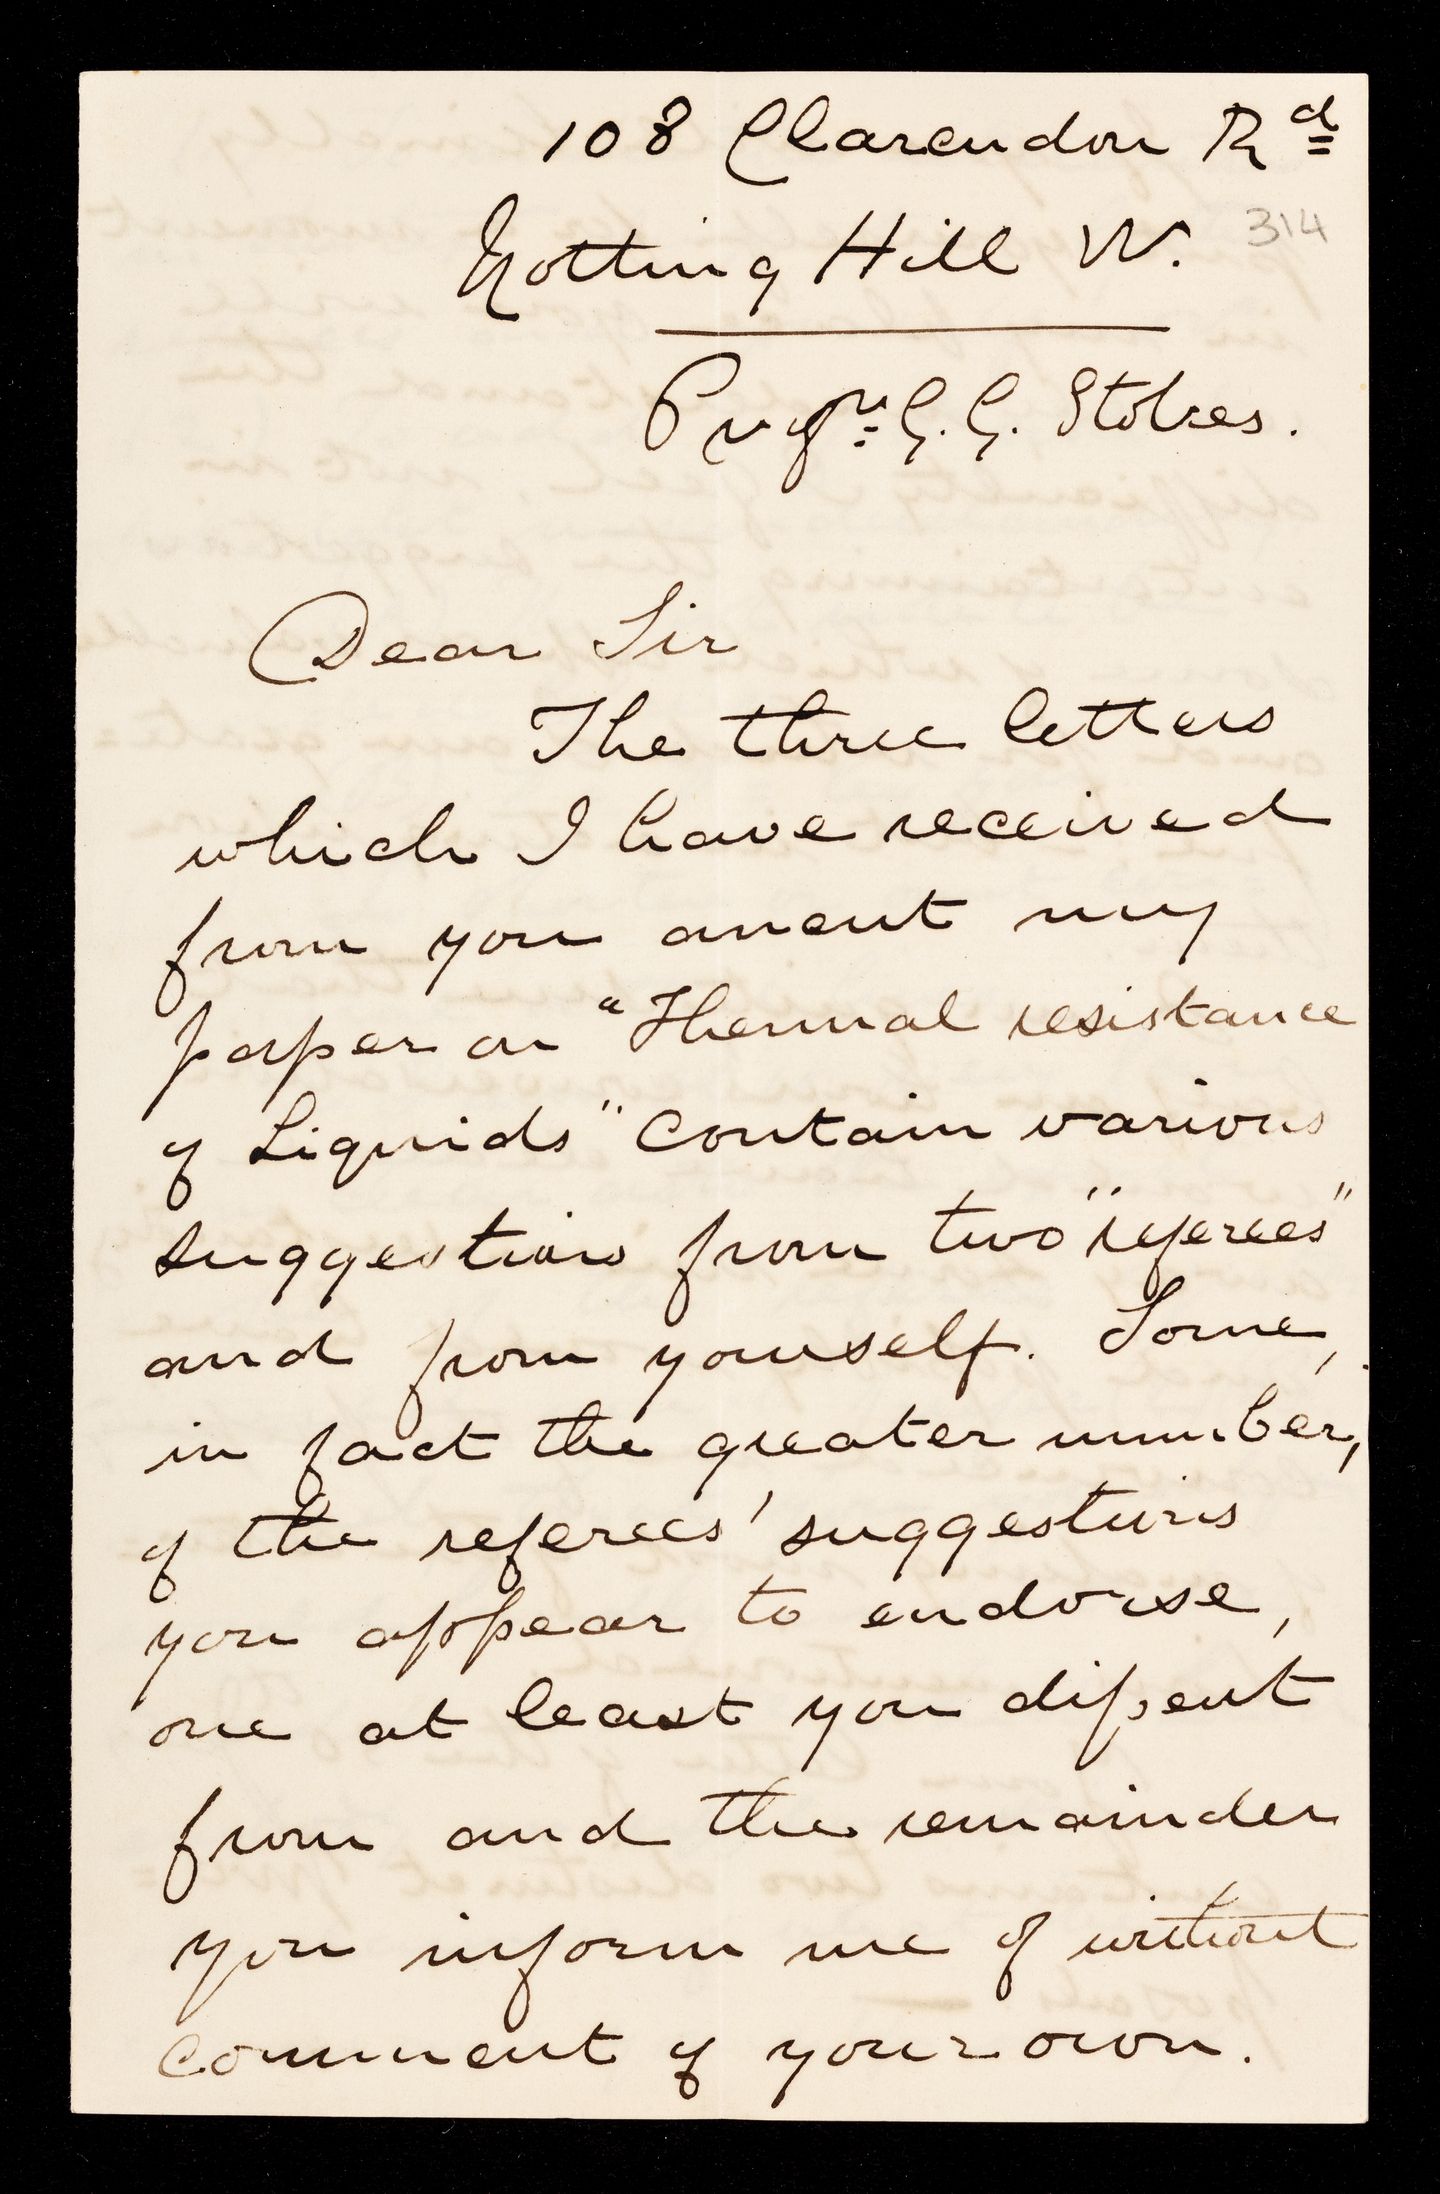 108 Clarendon Rd
Notting Hill W. 314
Profr: G. G. Stokes.
Dear Sir
The three letters
which I have received
from you anent my
paper on "Thermal resistance
of Liquids" contain various
suggestions from two "referees"
and from yourself. Some,
in fact the greater number,
of the referees' suggestions
you appear to endorse,
one at least you dissent
from and the remainder
you inform me of without
comment of your own.